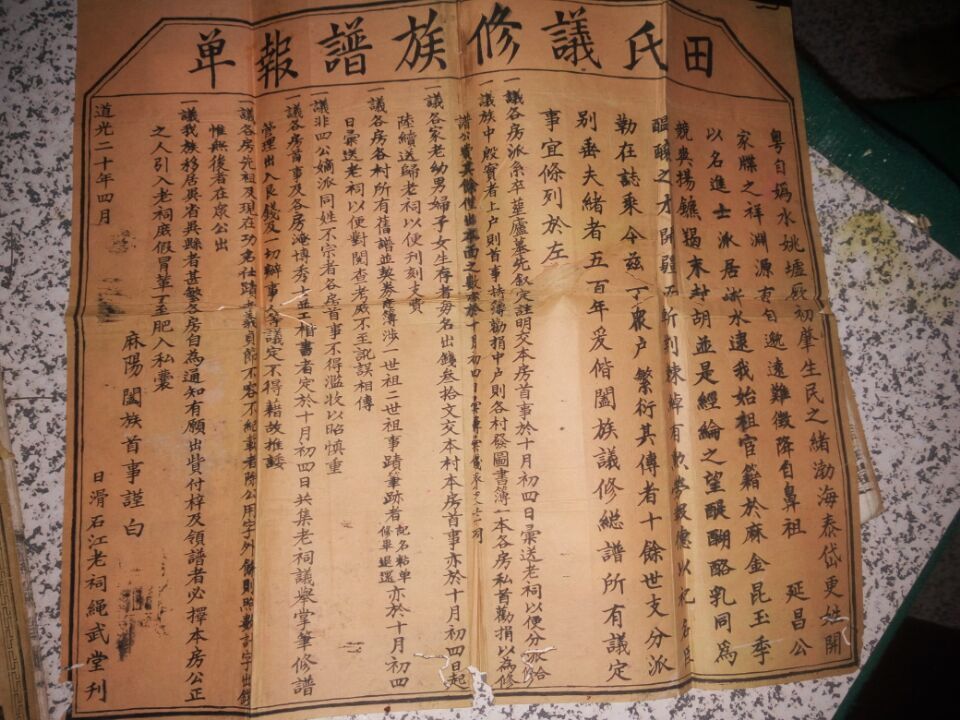 田氏議修族譜報单
粵自媯水姚墟厥初肇生民之緒渤海泰岱更姓開
家牒之祥淵源有自邈遠難徵降自鼻祖 延昌公
以名進士派居冰水逮我始祖官籍於麻金昆玉季
競奕揚鑣羯末封胡並是經綸之望醍醐酪乳同為
醞釀之才開疆
勒在誌乘今兹丁眾户繁衍其傳者十餘世支分派
別垂夫緒者五百年爰偕闔族議修総譜所有議定
事宜條列於左
一議各房派系卒塟廬墓先叙定註明交本房首事於十月初四日彙送老祠以便分派給
一議族中殷實者上户則首事持簿勸捐中户則各村發圖書簿一本各房私首勸捐以為修
譜公費其餘
一議各家老幼男婦子女生存者每名出錢叁拾文交本村本房首事亦於十月初四日起
陸續送歸老祠以便刊刻支費
一議各房各村所有舊譜並契券底簿涉一世祖二世祖事蹟筆跡者配名粘單修畢退還亦於十月初四
日彙送老祠以便對閱查考威不至訛誤相傳
一議非四公嫡派同姓不宗者各房首事不得濫收以昭慎重
一議各房首事及各房淹博秀士並工楷書者定於十月初四日共集老祠議舉掌筆修譜
管理出入艮錢及一切辦事人等議定不得藉故推諉
一議各房先祖及現在功名仕蹟 義貞節不容不紀載者除公用字外餘則照數計字出錢
惟無後者在眾公出
一議我族移居異省異縣者甚夥各房自為通知有願出貲付梓及領譜者必擇本房公正
之人引入老祠庶假冒華丁至肥入私囊
麻陽闔族首事謹白
道光二十年四月 日滑石江老祠繩武堂刊